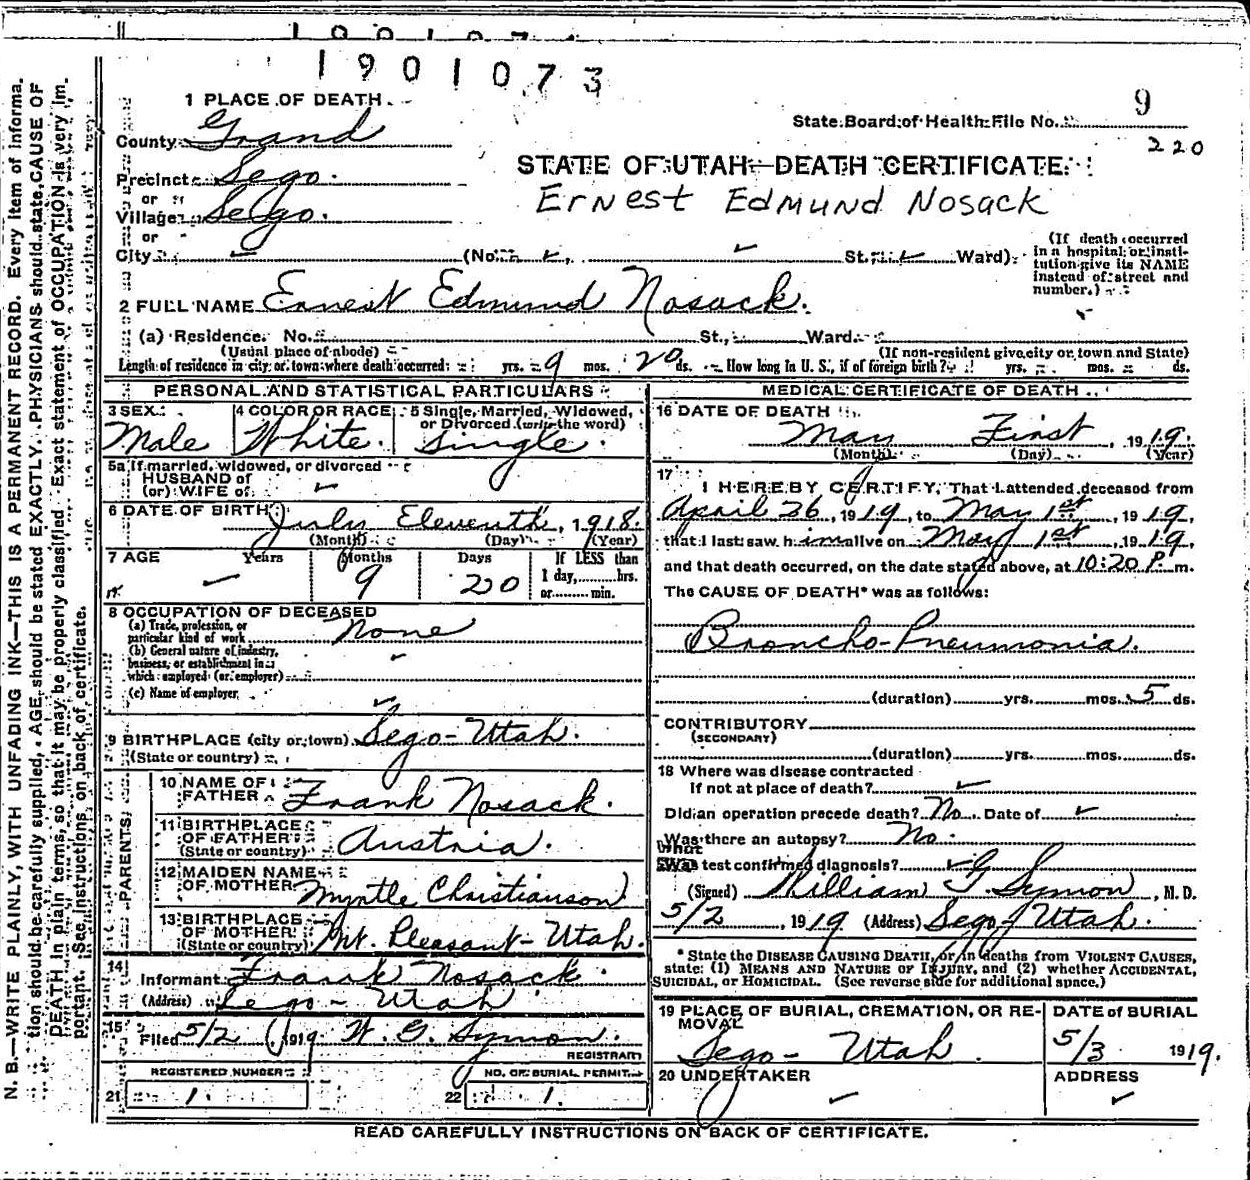 1901073
1 PLACE OF DEATH
9
State Board of Health File No.
220
County Grand
STATE OF UTAH—DEATH CERTIFICATE
Precinct Sego.
or
Ernest Edmund Nosack
Village Sego.
or
City (No. St. Ward)
(If death occurred
in a hospital or insti-
tution give its NAME
instead of street and
number.)
2 FULL NAME Ernest Edmund Nosack.
(a) Residence. No. St., Ward.
(Usual place of abode) (If non-resident give city or town and State)
Length of residence in city or town where death occurred yrs. 9 mos. 20 ds. How long in U. S., if of foreign birth? yrs. mos. ds.
PERSONAL AND STATISTICAL PARTICULARS
3 SEX 4 COLOR OR RACE 5 Single, Married, Widowed,
or Divorced (write the word)
Male White. Single.
5a If married, widowed, or divorced
HUSBAND of
(or) WIFE of
6 DATE OF BIRTH July Eleventh, 1918.
(Month) (Day) (Year)
7 AGE Years Months Days If LESS than
1 day, hrs.
9 20 or min.
8 OCCUPATION OF DECEASED
(a) Trade, profession, or
particular kind of work None
(b) General nature of industry,
business, or establishment in
which employed (or employer)
(c) Name of employer
9 BIRTHPLACE (city or town) Sego-Utah.
(State or country)
PARENTS
10 NAME OF
FATHER Frank Nosack.
11 BIRTHPLACE
OF FATHER Austria.
(State or country)
12 MAIDEN NAME
OF MOTHER Myrtle Christianson
13 BIRTHPLACE
OF MOTHER Mt. Pleasant-Utah.
(State or country)
14 Informant Frank Nosack.
(Address) Sego-Utah
15 Filed 5/2, 1919 W. G. Symon.
REGISTRAR
REGISTERED NUMBER NO. OF BURIAL PERMIT
21 1 22 1.
MEDICAL CERTIFICATE OF DEATH
16 DATE OF DEATH
May First, 1919.
(Month) (Day) (Year)
17 I HEREBY CERTIFY, That I attended deceased from
April 26, 1919, to May 1st, 1919,
that I last saw him alive on May 1st, 1919,
and that death occurred, on the date stated above, at 10:20 P. m.
The CAUSE OF DEATH* was as follows:
Broncho-Pneumonia.
(duration) yrs. mos. 5 ds.
CONTRIBUTORY
(SECONDARY)
(duration) yrs. mos. ds.
18 Where was disease contracted
If not at place of death?
Did an operation precede death? No. Date of
Was there an autopsy? No.
What
Was test confirmed diagnosis?
(Signed) William G. Symon, M. D.
5/2, 1919 (Address) Sego, Utah.
* State the DISEASE CAUSING DEATH, or in deaths from VIOLENT CAUSES,
state: (1) MEANS AND NATURE OF INJURY, and (2) whether ACCIDENTAL,
SUICIDAL, or HOMICIDAL. (See reverse side for additional space.)
19 PLACE OF BURIAL, CREMATION, OR RE-
MOVAL
Sego- Utah.
DATE of BURIAL
5/3 1919.
20 UNDERTAKER ADDRESS
READ CAREFULLY INSTRUCTIONS ON BACK OF CERTIFICATE.
N. B.—WRITE PLAINLY, WITH UNFADING INK—THIS IS A PERMANENT RECORD. Every item of informa-
tion should be carefully supplied. AGE should be stated EXACTLY. PHYSICIANS should state CAUSE OF
DEATH in plain terms, so that it may be properly classified. Exact statement of OCCUPATION is very im-
portant. See instructions on back of certificate.